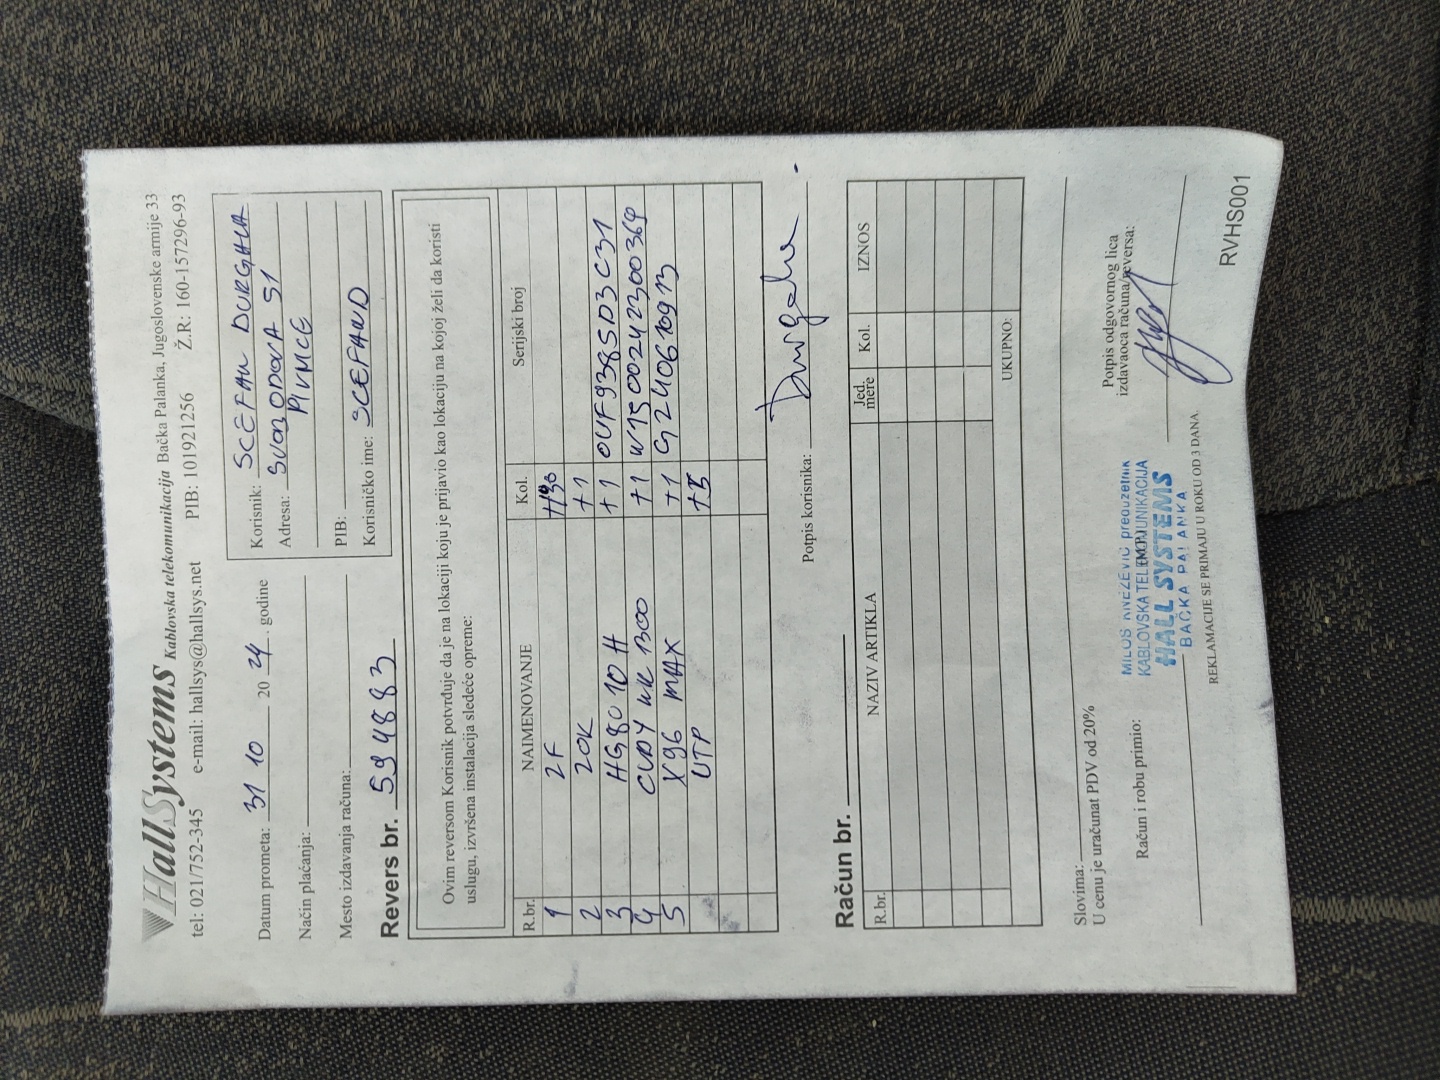 HallSystems Kablovska telekomunikacija Bačka Palanka, Jugoslovenske armije 33
tel: 021/752-345 e-mail: hallsys@hallsys.net PIB: 101921256 Ž.R: 160-157296-93
Datum prometa: 31 10 2024. godine
Način plaćanja:
Mesto izdavanja računa:
Korisnik: SCEPAN DURGALA
Adresa: SVOBODOVA 51
PIVNICE
PIB:
Korisničko ime: SCEPAND
Revers br. 594883
Ovim reversom Korisnik potvrđuje da je na lokaciji koju je prijavio kao lokaciju na kojoj želi da koristi
uslugu, izvršena instalacija sledeće opreme:
R.br. NAIMENOVANJE Kol. Serijski broj
1 2F
2 20K +1
3 HG8010H +1 OUF9385D3C31
4 CUDY WR 1300 +1 W1500242300369
5 X96 MAX +1 G240610913
UTP +5
Potpis korisnika: Durgala
Račun br.
R.br. NAZIV ARTIKLA Jed. mere Kol. IZNOS
UKUPNO:
Slovima:
U cenu je uračunat PDV od 20%
Račun i robu primio:
MILOŠ KNEŽEVIĆ preduzetnik
KABLOVSKA TELEKOMUNIKACIJA
HALL SYSTEMS
BAČKA PALANKA
Potpis odgovornog lica
izdavaoca računa/reversa:
REKLAMACIJE SE PRIMAJU U ROKU OD 3 DANA.
RVHS001